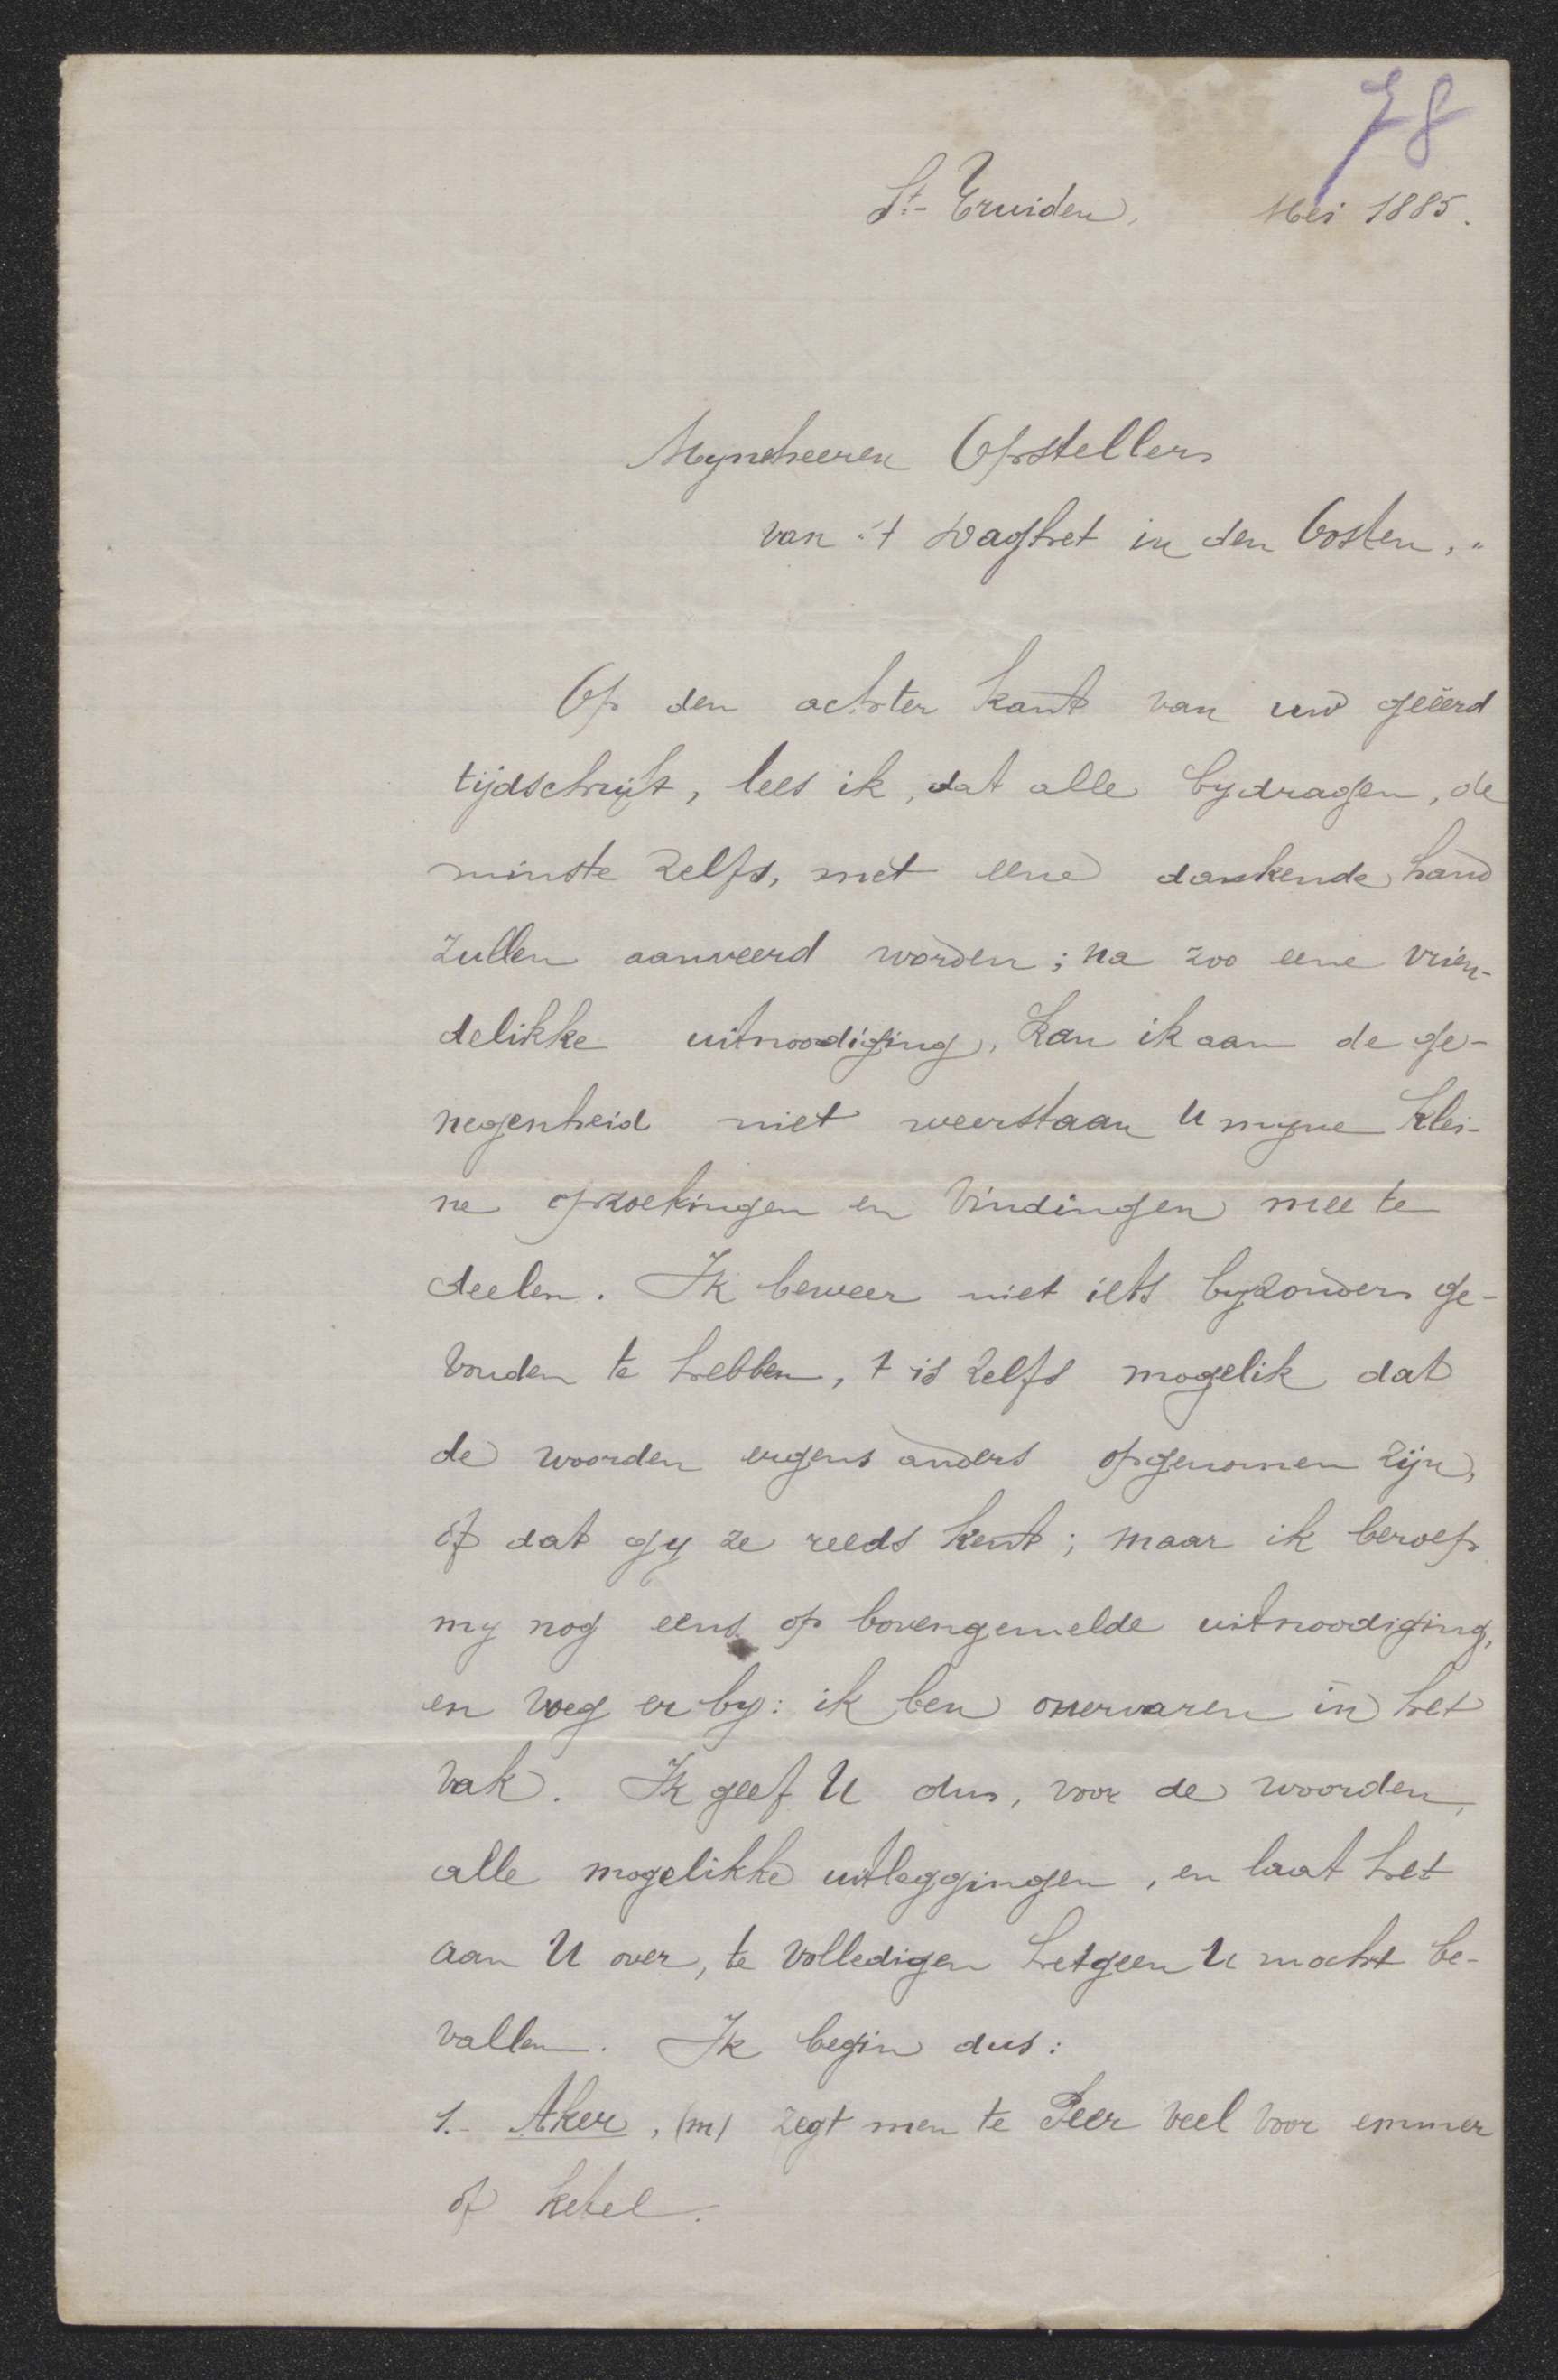 78
St. Truiden, Mei 1885.
Mynheeren Opstellers
van "'t Daghet in den Oosten,"
Op den achter kant van uw geëerd
tijdschrift, lees ik, dat alle bydragen, de
minste zelfs, met eene dankende hand
zullen aanveerd worden; na zoo eene vrien-
delikke uitnoodiging, kan ik aan de ge-
negenheid niet weerstaan U myne klei-
ne opzoekingen en vindingen mee te
deelen. Ik beweer niet iets byzonders ge-
vonden te hebben, 't is zelfs mogelik dat
de woorden ergens anders opgenomen zijn,
óf dat gy ze reeds kent; maar ik beroep
my nog eens op bovengemelde uitnoodiging,
en voeg er by: ik ben onervaren in het
vak. Ik geef U dus, voor de woorden,
alle mogelikke uitleggingen, en laat het
aan U over, te volledigen hetgeen U mocht be-
vallen. Ik begin dus:
1.- Aker, (m) zegt men te Peer veel voor emmer
of ketel.